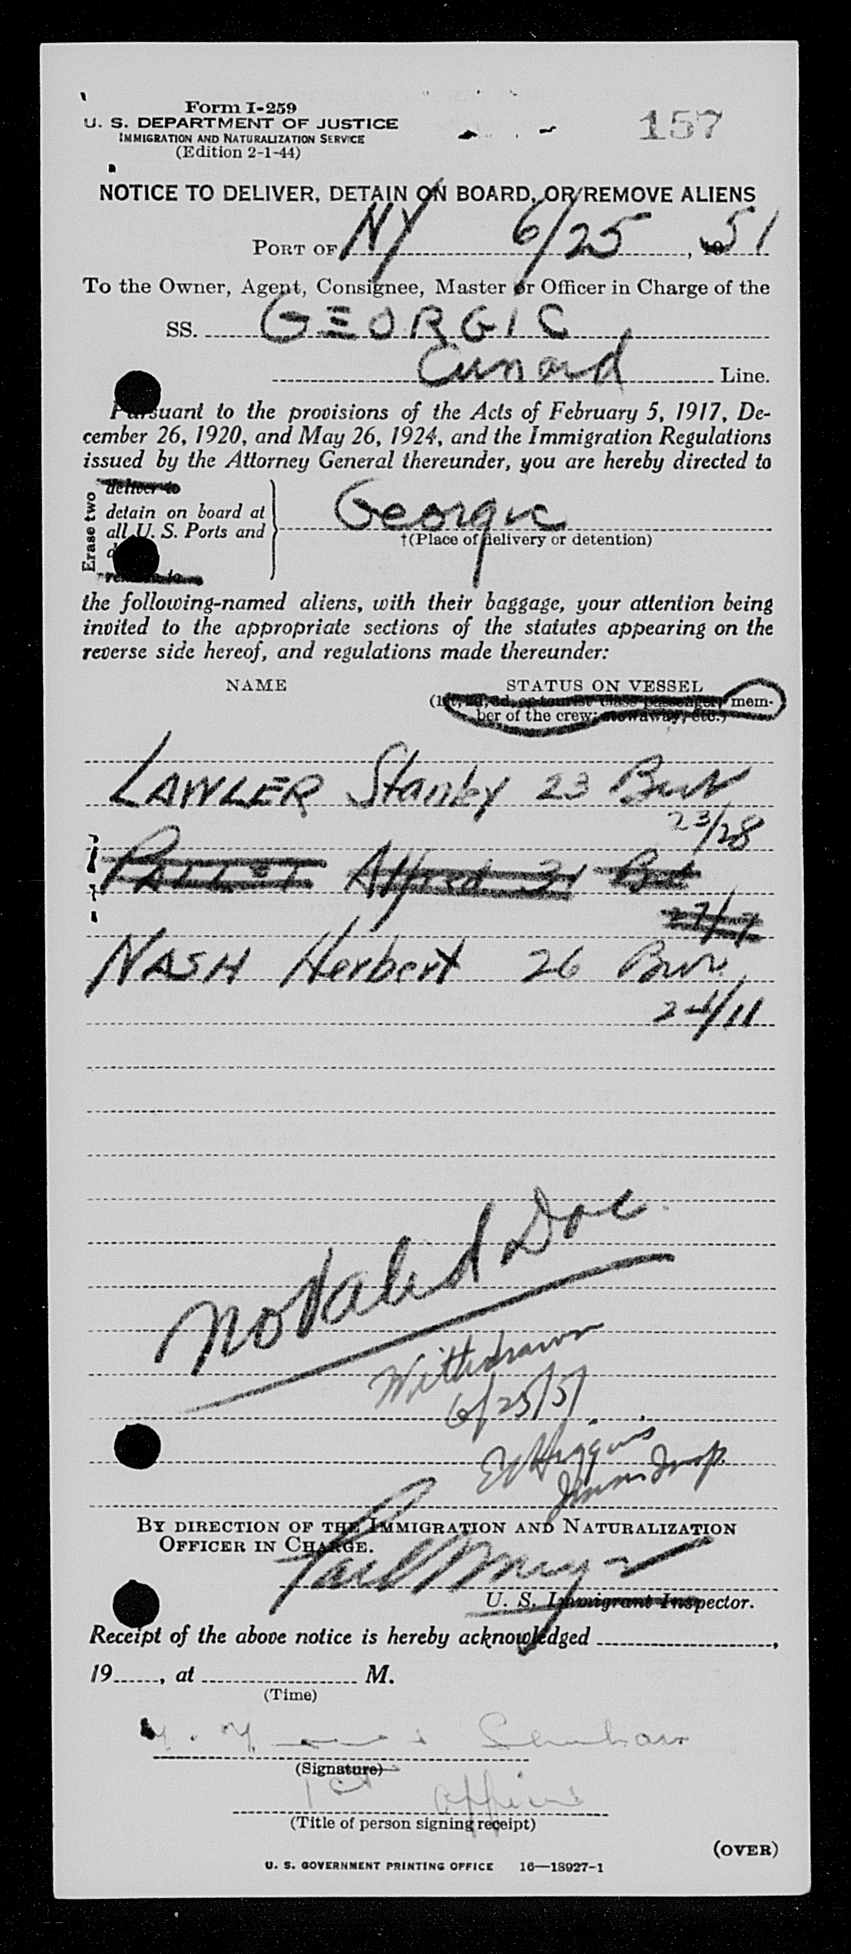 Form I-259
U. S. DEPARTMENT OF JUSTICE
IMMIGRATION AND NATURALIZATION SERVICE
(Edition 2-1-44)
157
NOTICE TO DELIVER, DETAIN ON BOARD, OR REMOVE ALIENS
PORT OF NY 6/25, 1951
To the Owner, Agent, Consignee, Master or Officer in Charge of the
SS. GEORGIC
Cunard Line.
Pursuant to the provisions of the Acts of February 5, 1917, De-
cember 26, 1920, and May 26, 1924, and the Immigration Regulations
issued by the Attorney General thereunder, you are hereby directed to
Erase two
deliver to
detain on board at
all U. S. Ports and
remove to
Georgic
†(Place of delivery or detention)
the following-named aliens, with their baggage, your attention being
invited to the appropriate sections of the statutes appearing on the
reverse side hereof, and regulations made thereunder:
NAME STATUS ON VESSEL
(1st, 2d, 3d, or tourist class passenger, mem-
ber of the crew; stowaway, etc.)
LAWLER Stanley 23 Brit
23/28
Alfred 31
27/7
NASH Herbert 26 Brit.
24/11
no Valid Doc.
Withdrawn
6/25/51
Higgins
Immn Insp
BY DIRECTION OF THE IMMIGRATION AND NATURALIZATION
OFFICER IN CHARGE.
U. S. Immigrant Inspector.
Receipt of the above notice is hereby acknowledged ,
19 , at M.
(Time)
(Signature)
1st Officer
(Title of person signing receipt)
(OVER)
U. S. GOVERNMENT PRINTING OFFICE 16—18927-1